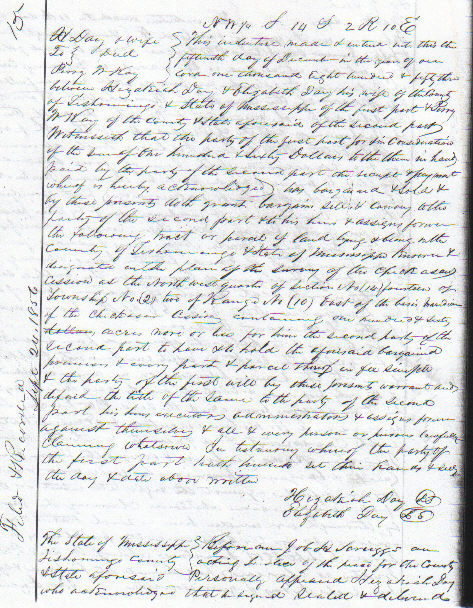 N W ¼ S 14 T 2 R 10 E
H Day & wife } This indenture made & entered into this the
To } Deed } fifteenth day of December in the year of our
Perry W Kay } Lord one thousand Eight hundred & fifty three
between Hezakiah Day & Elizabeth Day his wife of the County
of Tishomingo & State of Mississippi of the first part & Perry
W Kay of the County & State aforesaid of the second part
Witnesseth that the party of the first part for & in Consideration
of the sum of One hundred & Sixty Dollars to the them in hand
paid by the party of the second part the receipt & payment
whereof is hereby acknowledged has bargained & sold &
by these presents doth grant bargain sell & convey to the
party of the second part & his heirs & assigns forever
the following tract or parcel of land lying & being in the
County of Tishomingo & State of Mississippi known &
designated on the plan of the survey of the Chickasaw
Cession as the North west quarter of Section No (14) fourteen of
Township No (2) two of Range No (10) East of the basis meridian
of the Chickasaw Cession containing one hundred & sixty
acres more or less for him the second party of the
second part to have & to hold the aforesaid bargained
premises & every part & parcel thereof in fee simple
& the party of the first will by these presents warrant and
defend the title of the same to the party of the second
part his heirs executors administrators & assigns forever
against themselves & all & every person or persons lawfully
Claiming whatever In testimony whereof the party of
the first part hath hereunto set their hands & seals
the day & date above written
Hezakiah Day
Elizabeth Day
The State of Mississippi } Before me Job H Scruggs an
Tishomingo County } acting Justice of the peace for the County
& State aforesaid } Personally appeared Hezakiah Day
who acknowledged that he signed sealed & delivered
Filed & Recorded
Sept 24, 1856